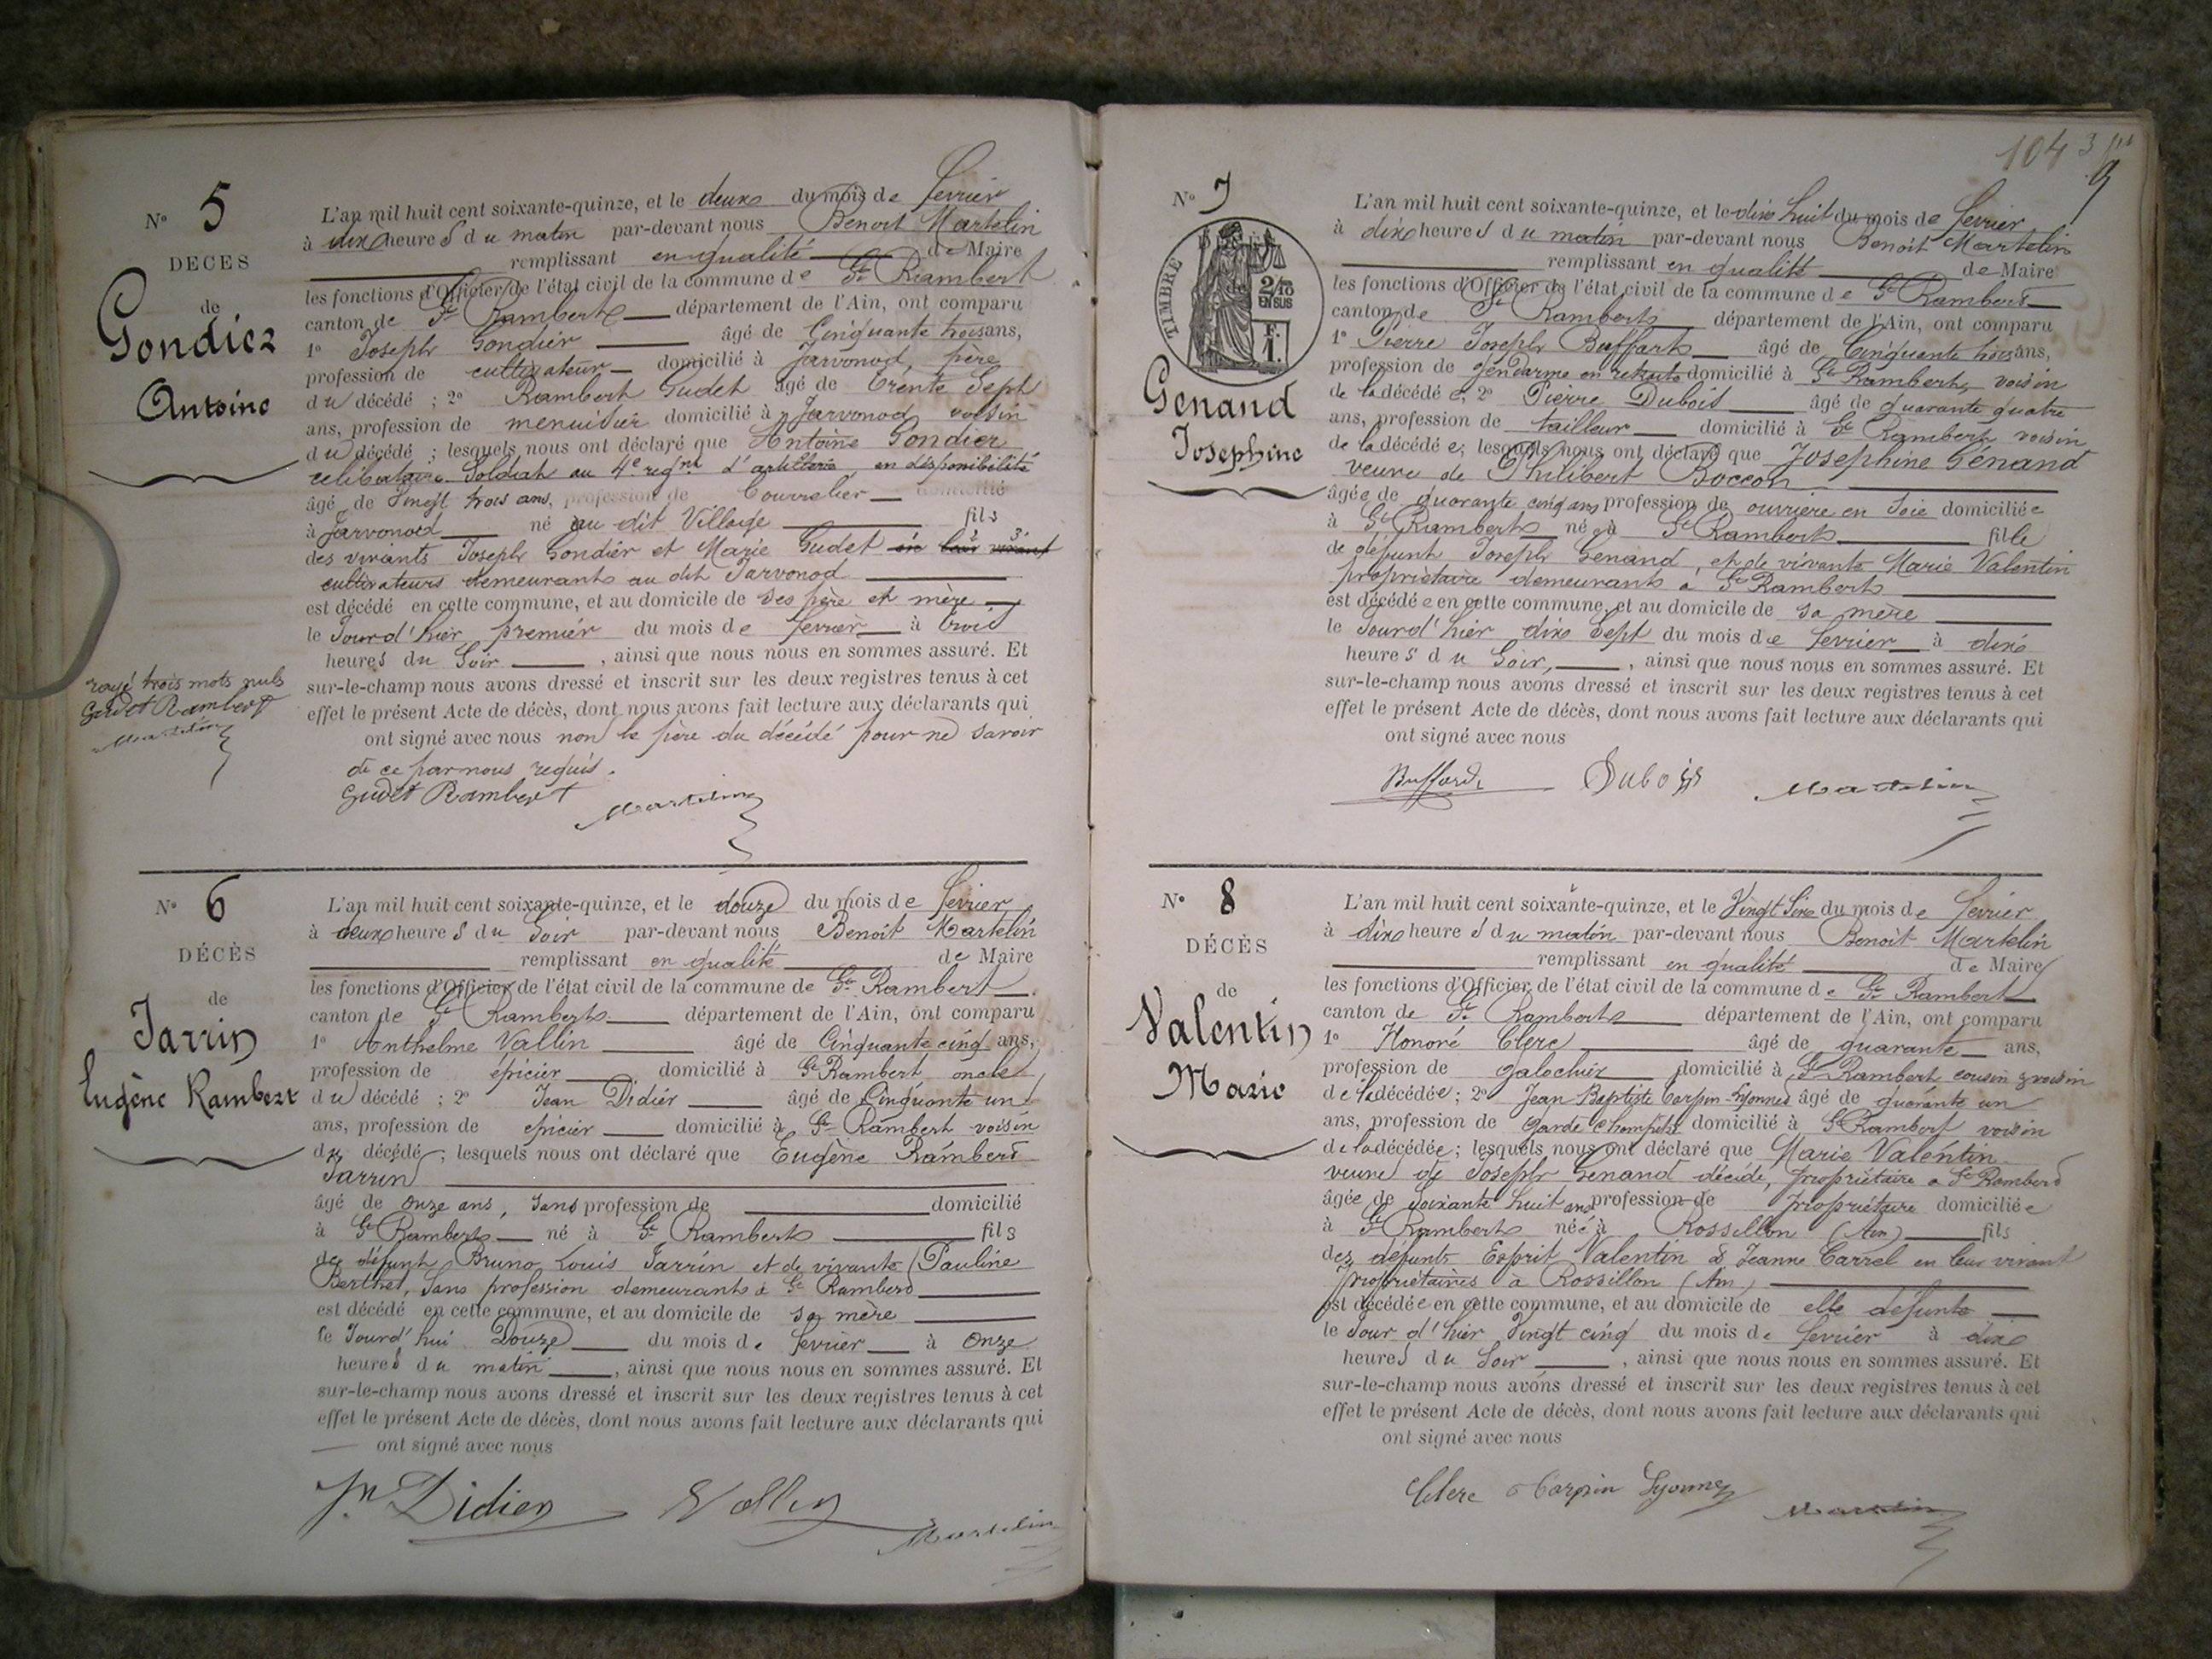 N° 5
DECES
de
Gondier
Antoine
L'an mil huit cent soixante-quinze, et le deux du mois de fevrier
à dix heures du matin par-devant nous Benoit Martelin
remplissant en qualité de Maire
les fonctions d'Officier de l'état civil de la commune de St Rambert
canton de St Rambert département de l'Ain, ont comparu
1° Joseph Gondier âgé de Cinquante trois ans,
profession de cultivateur domicilié à Jarvonod, père
du décédé ; 2° Rambert Gudet âgé de trente Sept
ans, profession de menuisier domicilié à Jarvonod voisin
du décédé ; lesquels nous ont déclaré que Antoine Gondier
celibataire Soldat au 4e regnt d'artillerie, en disponibilité
âgé de Vingt trois ans, profession de Bourrelier domicilié
à Jarvonod né au dit Village fils
des vivants Joseph Gondier et Marie Gudet en leur vivant
cultivateurs demeurants au dit Jarvonod
est décédé en cette commune, et au domicile de ses père et mère
le Jourd'hier premier du mois de fevrier à trois
heures du Soir, ainsi que nous nous en sommes assuré. Et
sur-le-champ nous avons dressé et inscrit sur les deux registres tenus à cet
effet le présent Acte de décès, dont nous avons fait lecture aux déclarants qui
ont signé avec nous non le père du décédé pour ne savoir
de ce par nous requis.
Gudet Rambert Martelin
rayé trois mots nuls
Gudet Rambert
Martelin
N° 6
DÉCÈS
de
Jarrin
Eugène Rambert
L'an mil huit cent soixante-quinze, et le douze du mois de fevrier
à deux heures du Soir par-devant nous Benoit Martelin
remplissant en qualité de Maire
les fonctions d'Officier de l'état civil de la commune de St Rambert
canton de St Rambert département de l'Ain, ont comparu
1° Anthelme Vallin âgé de Cinquante cinq ans,
profession de épicier domicilié à St Rambert oncle
du décédé ; 2° Jean Didier âgé de Cinquante un
ans, profession de épicier domicilié à St Rambert voisin
du décédé ; lesquels nous ont déclaré que Eugène Rambert
Jarrin
âgé de onze ans, Sans profession de domicilié
à St Rambert né à St Rambert fils
de défunt Bruno Louis Jarrin et de vivante Pauline
Berthet, Sans profession demeurants à St Rambert
est décédé en cette commune, et au domicile de sa mère
le Jourd'hui Douze du mois de fevrier à onze
heures du matin, ainsi que nous nous en sommes assuré. Et
sur-le-champ nous avons dressé et inscrit sur les deux registres tenus à cet
effet le présent Acte de décès, dont nous avons fait lecture aux déclarants qui
ont signé avec nous
Jn Didier Vallin Martelin
104
9
N° 7
TIMBRE
2/10
EN SUS
F.
1.
Genand
Josephine
L'an mil huit cent soixante-quinze, et le dix huit du mois de fevrier
à dix heures du matin par-devant nous Benoit Martelin
remplissant en qualité de Maire
les fonctions d'Officier de l'état civil de la commune de St Rambert
canton de St Rambert département de l'Ain, ont comparu
1° Pierre Joseph Buffart âgé de Cinquante trois ans,
profession de gendarme en retraite domicilié à St Rambert, voisin
de la décédée, 2° Pierre Dubois âgé de quarante quatre
ans, profession de tailleur domicilié à St Rambert voisin
de la décédée; lesquels nous ont déclaré que Josephine Genand
veuve de Philibert Boccon
âgée de quarante cinq ans profession de ouvrière en Soie domiciliée
à St Rambert née à St Rambert fille
de défunt Joseph Genand, et de vivante Marie Valentin
propriétaire demeurants à St Rambert
est décédée en cette commune, et au domicile de sa mère
le Jourd'hier dix Sept du mois de fevrier à dix
heures du Soir, ainsi que nous nous en sommes assuré. Et
sur-le-champ nous avons dressé et inscrit sur les deux registres tenus à cet
effet le présent Acte de décès, dont nous avons fait lecture aux déclarants qui
ont signé avec nous
Buffard Dubois Martelin
N° 8
DÉCÈS
de
Valentin
Marie
L'an mil huit cent soixante-quinze, et le Vingt Six du mois de fevrier
à dix heures du matin par-devant nous Benoit Martelin
remplissant en qualité de Maire
les fonctions d'Officier de l'état civil de la commune de St Rambert
canton de St Rambert département de l'Ain, ont comparu
1° Honoré Clerc âgé de quarante ans,
profession de galochier domicilié à St Rambert cousin & voisin
de la décédée ; 2° Jean Baptiste Carpin-Lyonnet âgé de quarante un
ans, profession de garde Champêtre domicilié à St Rambert voisin
de la décédée ; lesquels nous ont déclaré que Marie Valentin
veuve de Joseph Genand décédé, propriétaire à St Rambert
âgée de Soixante huit ans profession de propriétaire domiciliée
à St Rambert née à Rossillon (Ain) fils
des défunts Esprit Valentin & Jeanne Carrel en leur vivant
propriétaires à Rossillon (Ain)
est décédée en cette commune, et au domicile de elle défunte
le Jour d'hier Vingt cinq du mois de fevrier à dix
heures du Soir, ainsi que nous nous en sommes assuré. Et
sur-le-champ nous avons dressé et inscrit sur les deux registres tenus à cet
effet le présent Acte de décès, dont nous avons fait lecture aux déclarants qui
ont signé avec nous
Clerc Carpin Lyonnet Martelin